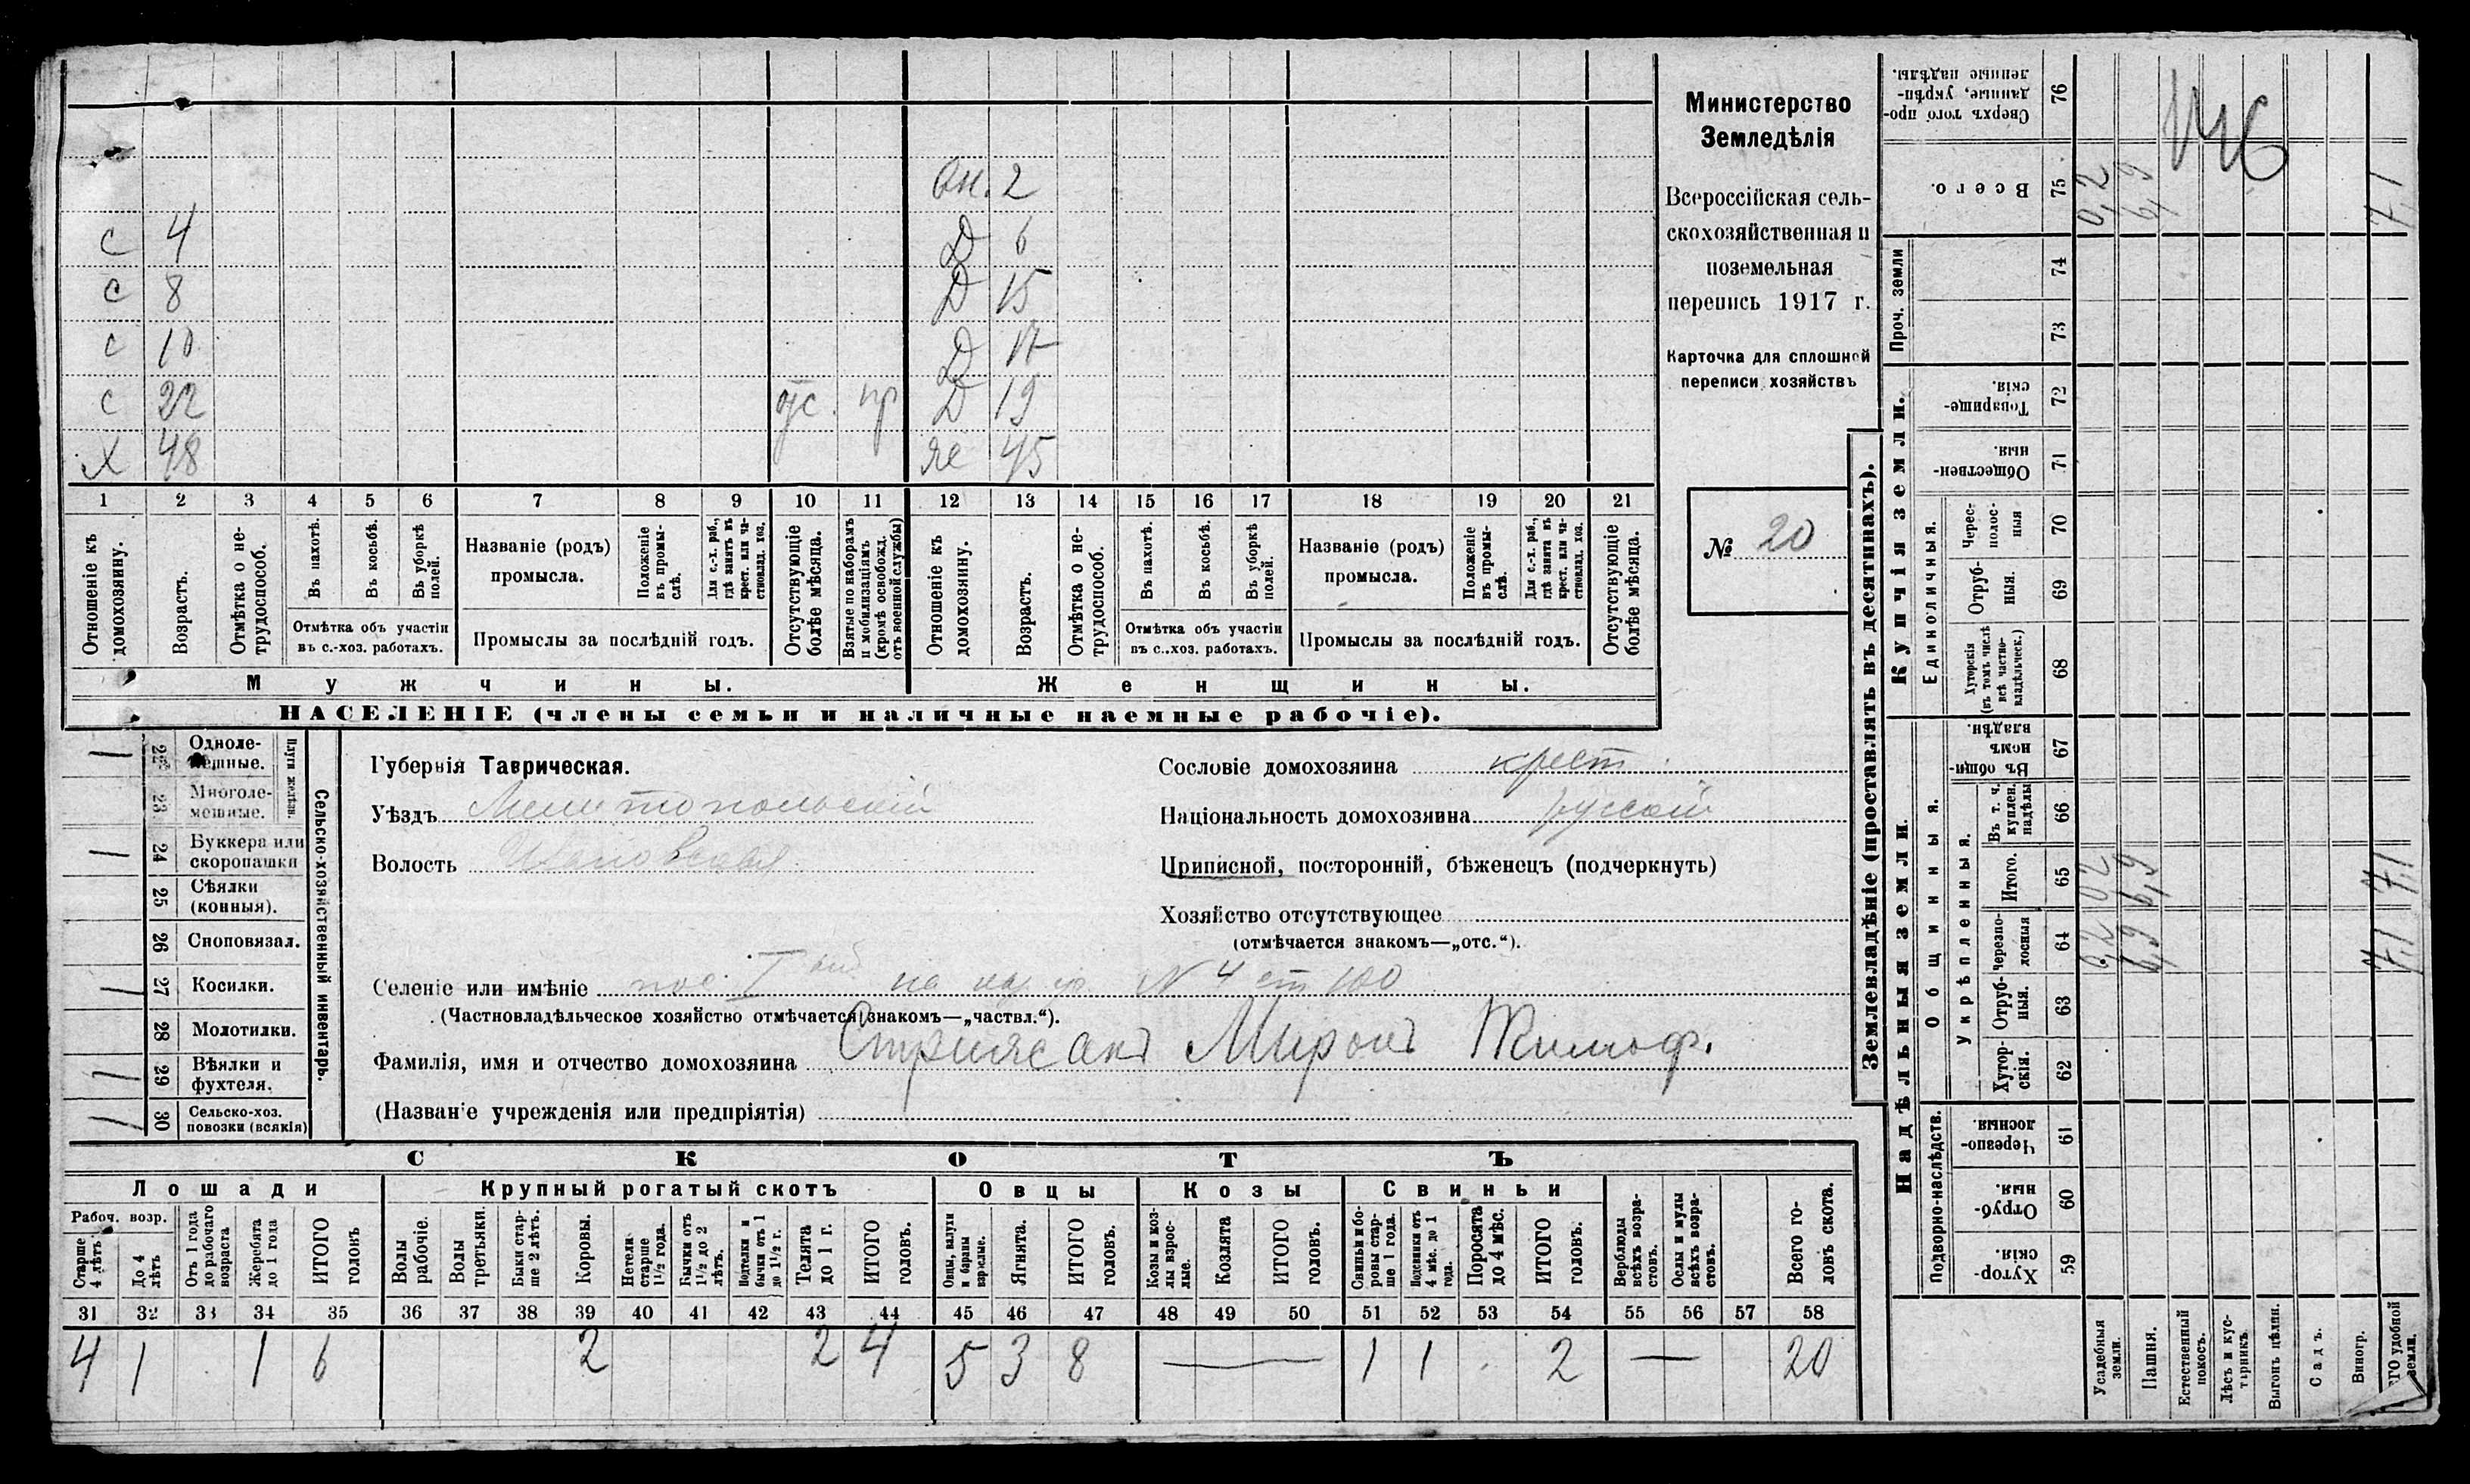 вн. 2
с 4 Д 6
с 8 Д 15
с 10 Д 17
с 22 отс. пр Д 19
х 48 же 45
1 2 3 4 5 6 7 8 9 10 11 12 13 14 15 16 17 18 19 20 21
Отношеніе къ домохозяину.
Возрастъ.
Отмѣтка о не-трудоспособ.
Въ пахотѣ.
Въ косьбѣ.
Въ уборкѣ полей.
Отмѣтка объ участіи въ с.-хоз. работахъ.
Названіе (родъ) промысла.
Положеніе въ промы-слѣ.
Для с.-х. раб., гдѣ занятъ въ крест. или ча-стновлад. хоз.
Промыслы за послѣдній годъ.
Отсутствующіе болѣе мѣсяца.
Взятые по наборамъ и мобилизаціямъ (кромѣ освобожд. отъ военной службы)
Отношеніе къ домохозяину.
Возрастъ.
Отмѣтка о не-трудоспособ.
Въ пахотѣ.
Въ косьбѣ.
Въ уборкѣ полей.
Отмѣтка объ участіи въ с..хоз. работахъ.
Названіе (родъ) промысла.
Положеніе въ промы-слѣ.
Для с.-х. раб., гдѣ занята въ крест. или ча-стновлад. хоз.
Промыслы за послѣдній годъ.
Отсутствующіе болѣе мѣсяца.
Мужчины.
Женщины.
НАСЕЛЕНІЕ (члены семьи и наличные наемные рабочіе).
Министерство
Земледѣлія
Всероссійская сель-
скохозяйственная и
поземельная
перепись 1917 г.
Карточка для сплошной
переписи хозяйствъ
№ 20
22 Одноле-мешные. 1
23 Многоле-мешные.
Плуги желѣзн.
24 Буккера или скоропашки 1
25 Сѣялки (конныя).
26 Сноповязал.
27 Косилки. 1
28 Молотилки.
29 Вѣялки и фухтеля. 1
30 Сельско-хоз. повозки (всякія) 1
Сельско-хозяйственный инвентарь.
Губернія Таврическая.
Уѣздъ Мелитопольскій
Волость Ивановская
Сословіе домохозяина крест.
Національность домохозяина русскій
Приписной, посторонній, бѣженецъ (подчеркнуть)
Хозяйство отсутствующее
(отмѣчается знакомъ—„отс.“).
Селеніе или имѣніе пос. I ый на N 4 ст 100
(Частновладѣльческое хозяйство отмѣчается знакомъ—„частвл.“).
Фамилія, имя и отчество домохозяина Миронъ Тимоф.
(Названіе учрежденія или предпріятія)
СКОТЪ
Лошади Крупный рогатый скотъ Овцы Козы Свиньи
Рабоч. возр.
Старше 4 лѣтъ
До 4 лѣтъ
Отъ 1 года до рабочаго возраста
Жеребята до 1 года
ИТОГО головъ
Волы рабочіе.
Волы третьяки.
Быки стар-ше 2 лѣтъ.
Коровы.
Нетели старше 1½ года.
Бычки отъ 1½ до 2 лѣтъ.
Подтелки и бычки отъ 1 до 1½ г.
Телята до 1 г.
ИТОГО головъ.
Овцы, валухи и бараны взрослые.
Ягнята.
ИТОГО головъ.
Козы и коз-лы взрос-лые.
Козлята
ИТОГО головъ.
Свиньи и бо-ровы стар-ше 1 года.
Подсвинки отъ 4 мѣс. до 1 года.
Поросята до 4 мѣс.
ИТОГО головъ.
Верблюды всѣхъ возра-стовъ.
Ослы и мулы всѣхъ возра-стовъ.
Всего го-ловъ скота.
31 32 33 34 35 36 37 38 39 40 41 42 43 44 45 46 47 48 49 50 51 52 53 54 55 56 57 58
4 1 1 6 2 2 4 5 3 8 — 1 1 2 — 20
Землевладѣніе (проставлять въ десятинахъ).
Купчія земли.
Надѣльныя земли.
Сверхъ того про-данные, укрѣп-ленные надѣлы. 76
Всего. 75 0,2 6,9 7,1
Проч. земли 74 73
Товарище-скія. 72
Обществен-ныя. 71
Единоличныя.
Черес-полос-ныя 70
Отруб-ныя. 69
Хуторскія (въ томъ числѣ всѣ частно-владѣльческ.) 68
Общинныя.
Въ общи-номъ владѣн. 67
Укрѣпленныя.
Въ т. ч. куплен. надѣлы 66
Итого. 65 0,2 6,9 7,1
Черезпо-лосныя 64 0,2 6,9 7,1
Отруб-ныя. 63
Хутор-скія. 62
Подворно-наслѣдств.
Черезпо-лосныя 61
Отруб-ныя. 60
Хутор-скія. 59
Усадебныя земли.
Пашня.
Естественный покосъ.
Лѣсъ и кус-тарникъ.
Выгонъ цѣлин.
Садъ.
Виногр.
ГО удобной земли.